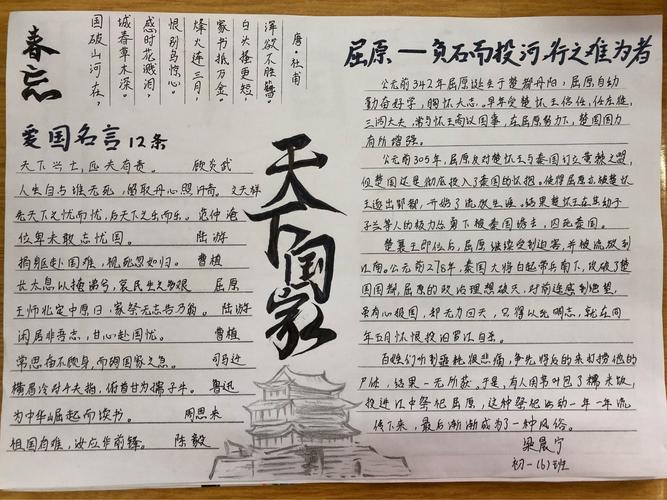 春忘
国破山河在，
城春草木深。
感时花溅泪，
恨别鸟惊心。
烽火连三月，
家书抵万金。
白头搔更短，
浑欲不胜簪。
唐·杜甫
爱国名言12条
天下兴亡，匹夫有责。 顾炎武
人生自古谁无死，留取丹心照汗青。文天祥
先天下之忧而忧，后天下之乐而乐。范仲淹
位卑未敢忘忧国。 陆游
捐躯赴国难，视死忽如归。 曹植
长太息以掩涕兮，哀民生之多艰 屈原
王师北定中原日，家祭无忘告乃翁。 陆游
闲居非吾志，甘心赴国忧。 曹植
常思奋不顾身，而殉国家之急。 司马迁
横眉冷对千夫指，俯首甘为孺子牛。 鲁迅
为中华崛起而读书。 周恩来
祖国有难，汝应作前锋。 陈毅
天下国家
屈原——负石而投河，行之难为者
公元前342年屈原诞生于楚都丹阳，屈原自幼
勤奋好学，胸怀大志。早年受楚怀王信任，任左徒，
三闾大夫，常与怀王商议国事，在屈原努力下，楚国国力
有所增强。
公元前305年，屈原反对楚怀王与秦国订立黄棘之盟，
但楚国还是彻底投入了秦国的怀抱。使得屈原亦被楚怀
王逐出郢都，开始了流放生涯。结果楚怀王在其幼子
子兰等人的极力怂恿下被秦国诱去，囚死秦国。
楚襄王即位后，屈原继续受到迫害，并被流放到
江南。公元前278年，秦国大将白起带兵南下，攻破了楚
国国都，屈原的政治理想破灭，对前途感到绝望，
虽有心报国，却无力回天，只得以死明志，就在同
年五月怀恨投汨罗江自杀。
百姓们听到噩耗很悲痛，争先恐后的来打捞他的
尸体，结果一无所获。于是，有人用苇叶包了糯米饭，
投进江中祭祀屈原，这种祭祀活动一年一年流
传下来，最后渐渐成为了一种风俗。
梁晨宁
初一(6)班